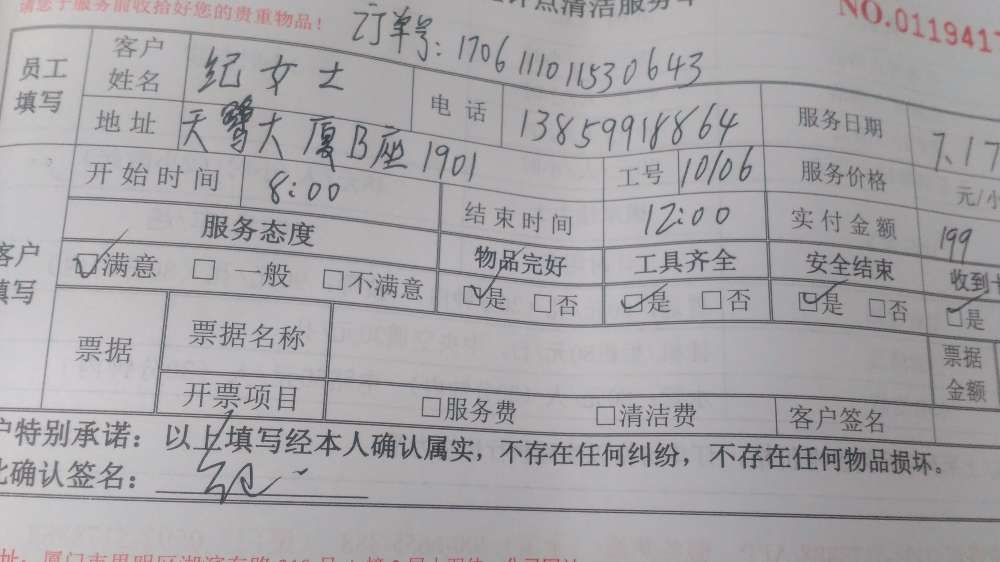 请您于服务前收拾好您的贵重物品！
点清洁服务
NO.0119417
订单号：170611101153 0643
员工填写 客户姓名 纪女士 电话 13859918864 服务日期 7.17
地址 天鹭大厦B座1901 工号 10106 服务价格 元/小
开始时间 8:00 结束时间 12:00 实付金额 199
客户填写 服务态度 物品完好 工具齐全 安全结束 收到
☑满意 □一般 □不满意 ☑是 □否 ☑是 □否 ☑是 □否 ☑是
票据 票据名称 票据金额
开票项目 □服务费 □清洁费 客户签名
户特别承诺：以上填写经本人确认属实，不存在任何纠纷，不存在任何物品损坏。
此确认签名：纪